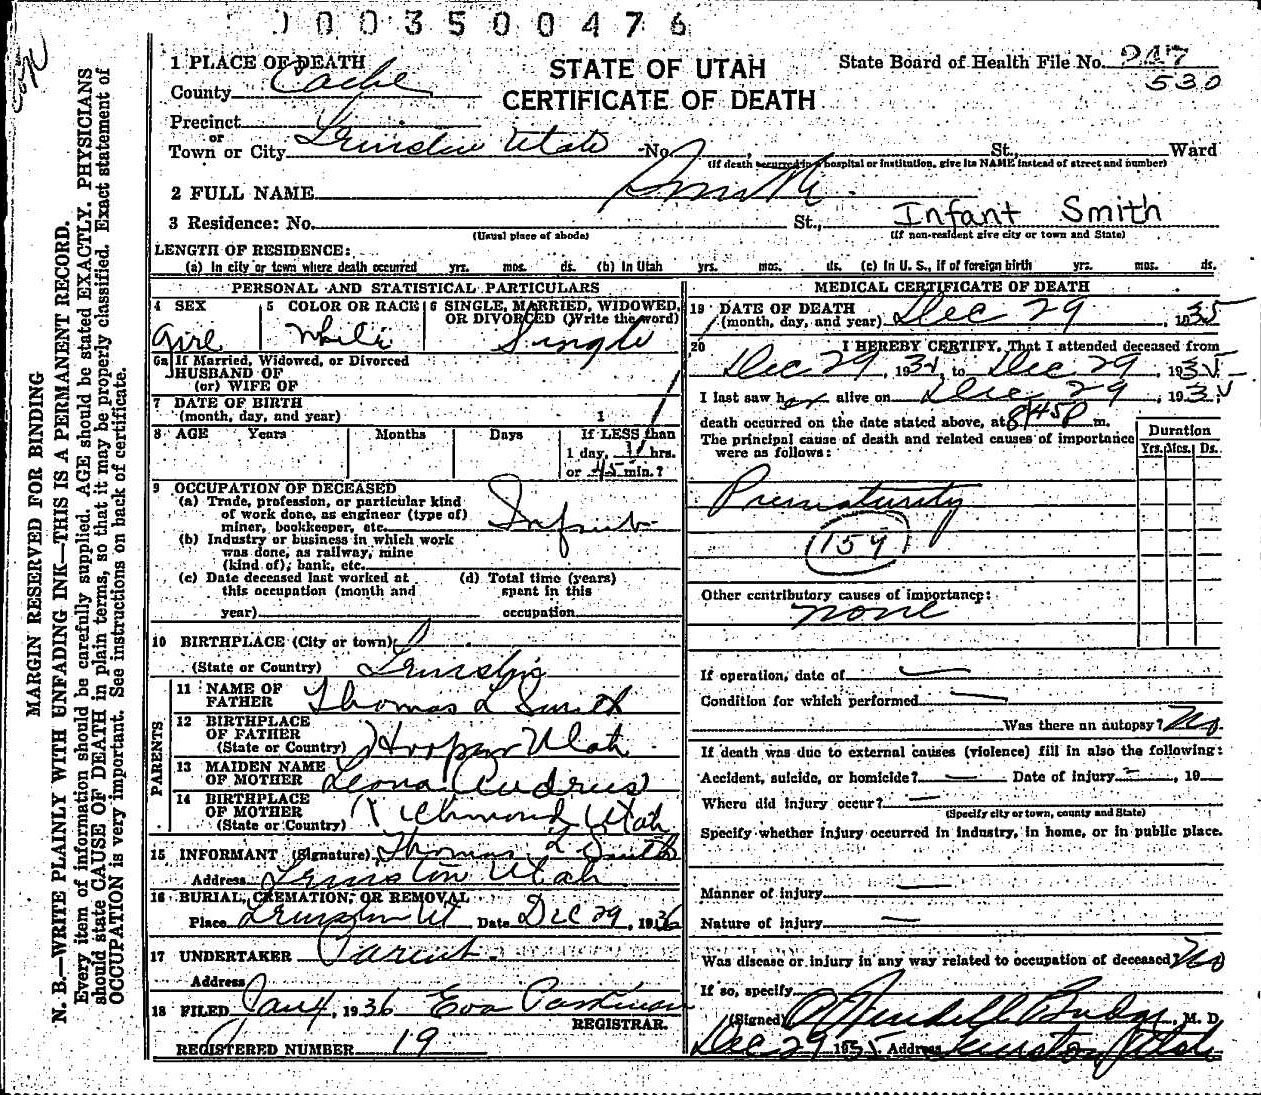 1003500476
copy
MARGIN RESERVED FOR BINDING
N. B.—WRITE PLAINLY WITH UNFADING INK—THIS IS A PERMANENT RECORD.
Every item of information should be carefully supplied. AGE should be stated EXACTLY. PHYSICIANS
should state CAUSE OF DEATH in plain terms, so that it may be properly classified. Exact statement of
OCCUPATION is very important. See instructions on back of certificate.
STATE OF UTAH
CERTIFICATE OF DEATH
State Board of Health File No. 247
530
1 PLACE OF DEATH
County Cache
Precinct
or
Town or City Lewiston Utah No. , St., Ward
(If death occurred in a hospital or institution, give its NAME instead of street and number)
2 FULL NAME Smith
3 Residence: No. St., Infant Smith
(Usual place of abode) (If non-resident give city or town and State)
LENGTH OF RESIDENCE:
(a) In city or town where death occurred yrs. mos. ds. (b) In Utah yrs. mos. ds. (c) In U. S., if of foreign birth yrs. mos. ds.
PERSONAL AND STATISTICAL PARTICULARS
4 SEX Girl
5 COLOR OR RACE White
6 SINGLE, MARRIED, WIDOWED, OR DIVORCED (Write the word) Single
6a If Married, Widowed, or Divorced
HUSBAND OF
(or) WIFE OF
7 DATE OF BIRTH
(month, day, and year) 1
8 AGE Years Months Days If LESS than
1 day, hrs.
or 45 min.?
9 OCCUPATION OF DECEASED
(a) Trade, profession, or particular kind
of work done, as engineer (type of)
miner, bookkeeper, etc. Infant
(b) Industry or business in which work
was done, as railway, mine
(kind of), bank, etc.
(c) Date deceased last worked at
this occupation (month and
year)
(d) Total time (years)
spent in this
occupation
10 BIRTHPLACE (City or town)
(State or Country) Lewiston
PARENTS
11 NAME OF
FATHER Thomas L Smith
12 BIRTHPLACE
OF FATHER
(State or Country) Hooper Utah
13 MAIDEN NAME
OF MOTHER Leona Andrus
14 BIRTHPLACE
OF MOTHER
(State or Country) Richmond Utah
15 INFORMANT (Signature) Thomas L Smith
Address Lewiston Utah
16 BURIAL, CREMATION, OR REMOVAL
Place Lewiston Ut Date Dec 29, 1936
17 UNDERTAKER Parent
Address
18 FILED Jan 4, 1936 Eva
REGISTRAR.
REGISTERED NUMBER 19
MEDICAL CERTIFICATE OF DEATH
19 DATE OF DEATH
(month, day, and year) Dec 29, 1935
20 I HEREBY CERTIFY, That I attended deceased from
Dec 29, 1935, to Dec 29, 1935
I last saw her alive on Dec 29, 1935
death occurred on the date stated above, at 8:45 P m.
The principal cause of death and related causes of importance
were as follows:
Duration
Yrs. Mos. Ds.
Prematurity
159
Other contributory causes of importance:
none
If operation, date of
Condition for which performed
Was there an autopsy? No
If death was due to external causes (violence) fill in also the following:
Accident, suicide, or homicide? Date of injury , 19
Where did injury occur?
(Specify city or town, county and State)
Specify whether injury occurred in industry, in home, or in public place.
Manner of injury
Nature of injury
Was disease or injury in any way related to occupation of deceased? No
If so, specify
(Signed) , M. D.
Dec 29 1935 Address Lewiston, Utah